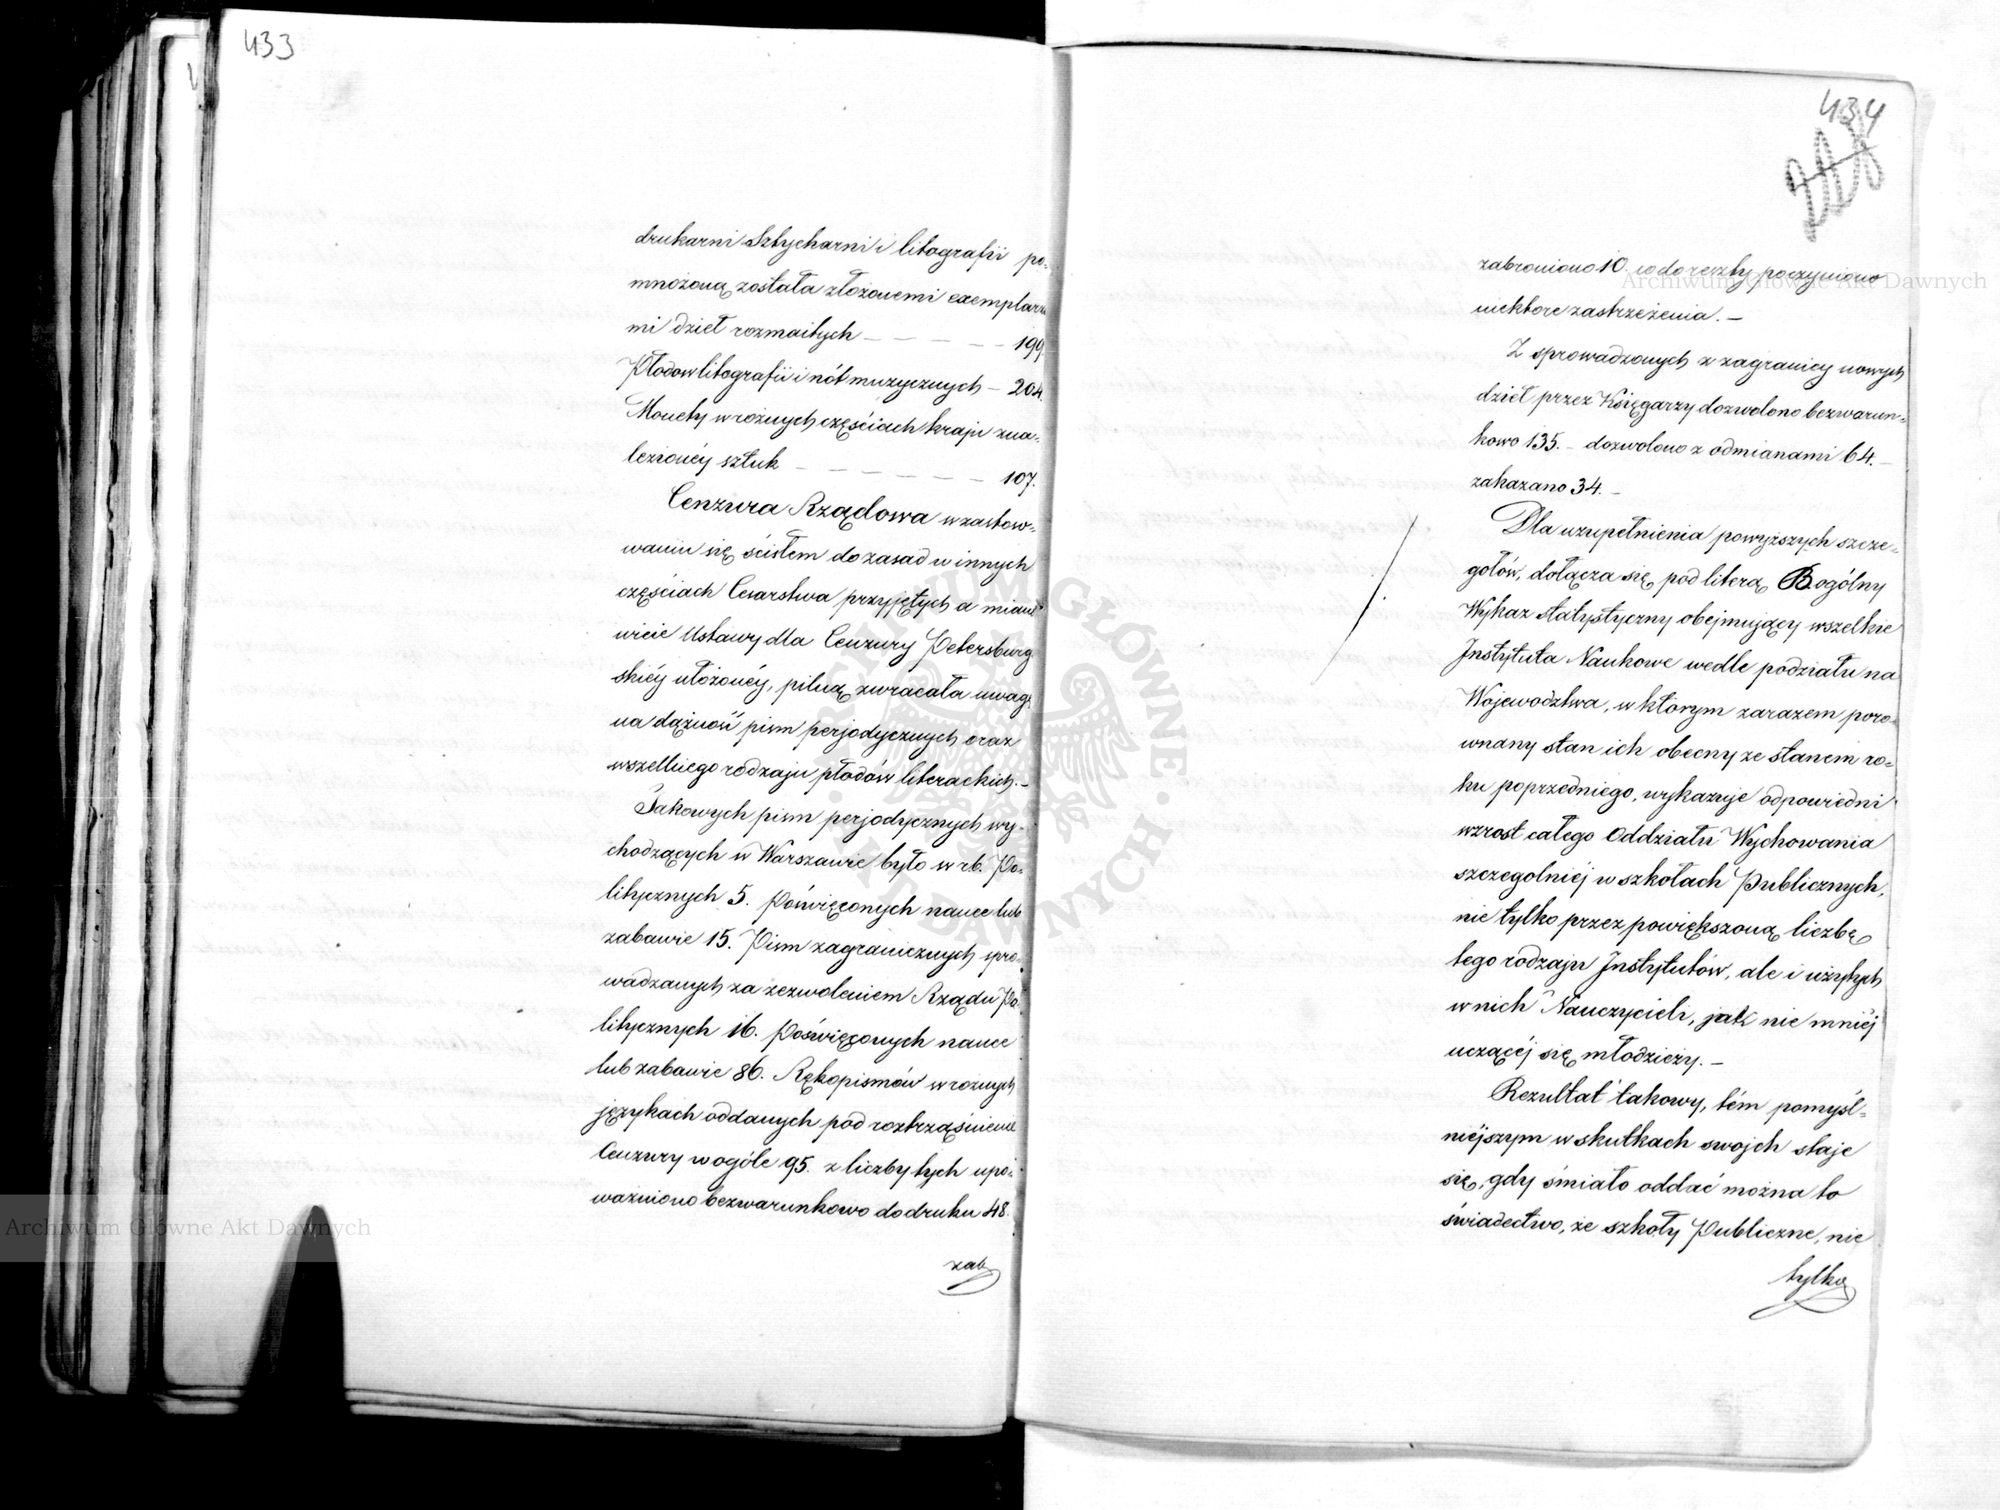 433
drukarni Sztycharni i litografii po-
mnożoną została złożonemi exemplarza
mi dzieł rozmaitych — — — — — 199
Płodow litografii i nót muzycznych — 204.
Monety w rożnych częściach kraju zna-
lezionéy sztuk — — — — — 107.
Cenzura Rządowa w zastow-
waniu się ścisłem do zasad w innych
częściach Cesarstwa przyjętych a miano
wicie Ustawy dla Cenzury Petersburg
skiéy ułożonéy, pilną zwracała uwagę
na dążność pism perjodycznych oraz
wszelkiego rodzaju płodów literackich. —
Takowych pism perjodycznych wy-
chodzących w Warszawie było w r.b. Po-
litycznych 5. Poświęconych nauce lub
zabawie 15. Pism zagranicznych spro-
wadzanych za zezwoleniem Rządu Po-
litycznych 16. Poświęconych nauce
lub zabawie 86. Rękopismów w rożnych
językach oddanych pod roztrząśnienie
Cenzury w ogóle 95. z liczby tych upo-
ważniono bezwarunkowo do druku 48.
zab
434
zabroniono 10. co do reszty poczyniono
niektore zastrzeżenia. —
Z sprowadzonych z zagranicy nowych
dzieł przez Księgarzy dozwolono bezwarun-
kowo 135. — dozwolono z odmianami 64. —
zakazano 34. —
Dla uzupełnienia powyższych szcze-
gołów, dołącza się pod literą B ogólny
Wykaz statystyczny obejmujący wszelkie
Instytuta Naukowe wedle podziału na
Wojewodztwa, w którym zarazem poro-
wnany stan ich obecny ze stanem ro-
ku poprzedniego, wykazuje odpowiedni
wzrost całego Oddziału Wychowania
szczegolniéj w szkołach Publicznych,
nie tylko przez powiększoną liczbę
tego rodzaju Instytutów, ale i użytych
w nich Nauczycieli, jak nie mniéj
uczącéj się młodzieży. —
Rezultat takowy, tém pomyśl-
niéjszym w skutkach swojch staje
się, gdy śmiało oddać można to
świadectwo, że szkoły Publiczne, nie
tylko
Archiwum Główne Akt Dawnych
Archiwum Główne Akt Dawnych
ARCHIWUM GŁÓWNE AKT DAWNYCH